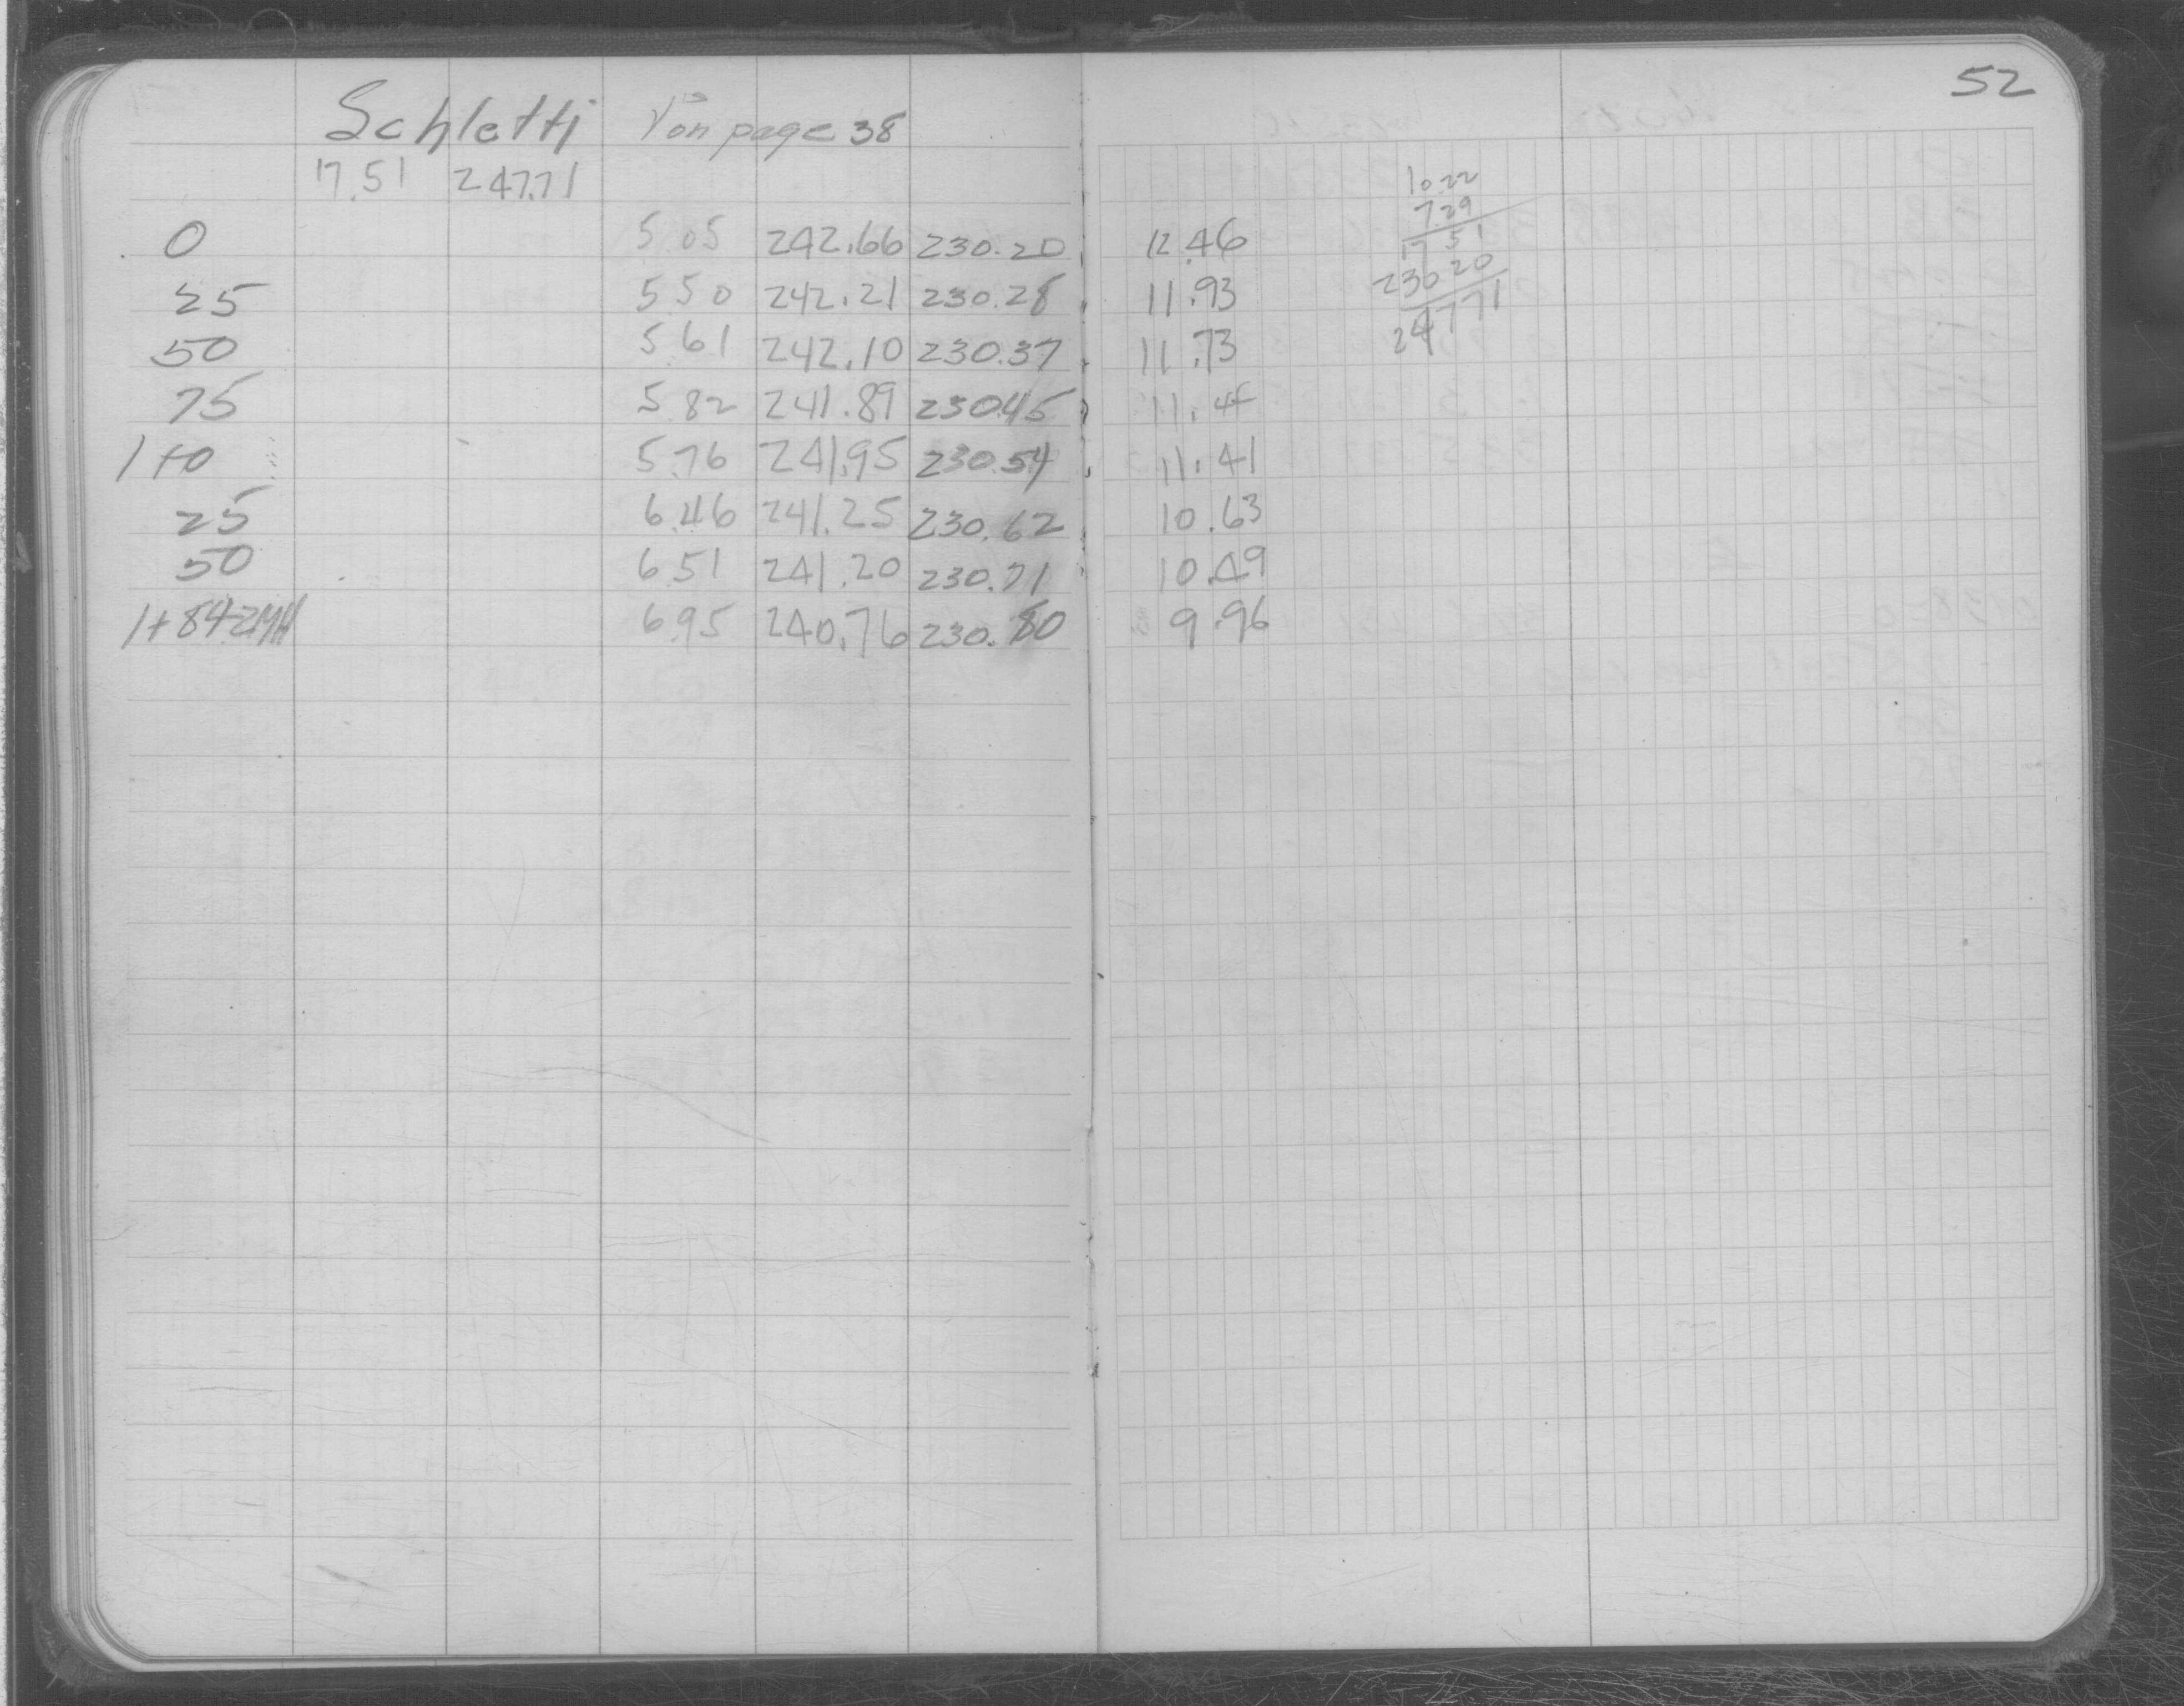 52
Schletti Von page 38
17.51 247.71
0 5.05 242.66 230.20 12.46
25 5.50 242.21 230.28 11.93
50 5.61 242.10 230.37 11.73
75 5.82 241.89 230.45 11.44
1+0 5.76 241.95 230.54 11.41
25 6.46 241.25 230.62 10.63
50 6.51 241.20 230.71 10.49
1+84.2MH 6.95 240.76 230.80 9.96
10.22
7.29
17 51
230 20
247 71